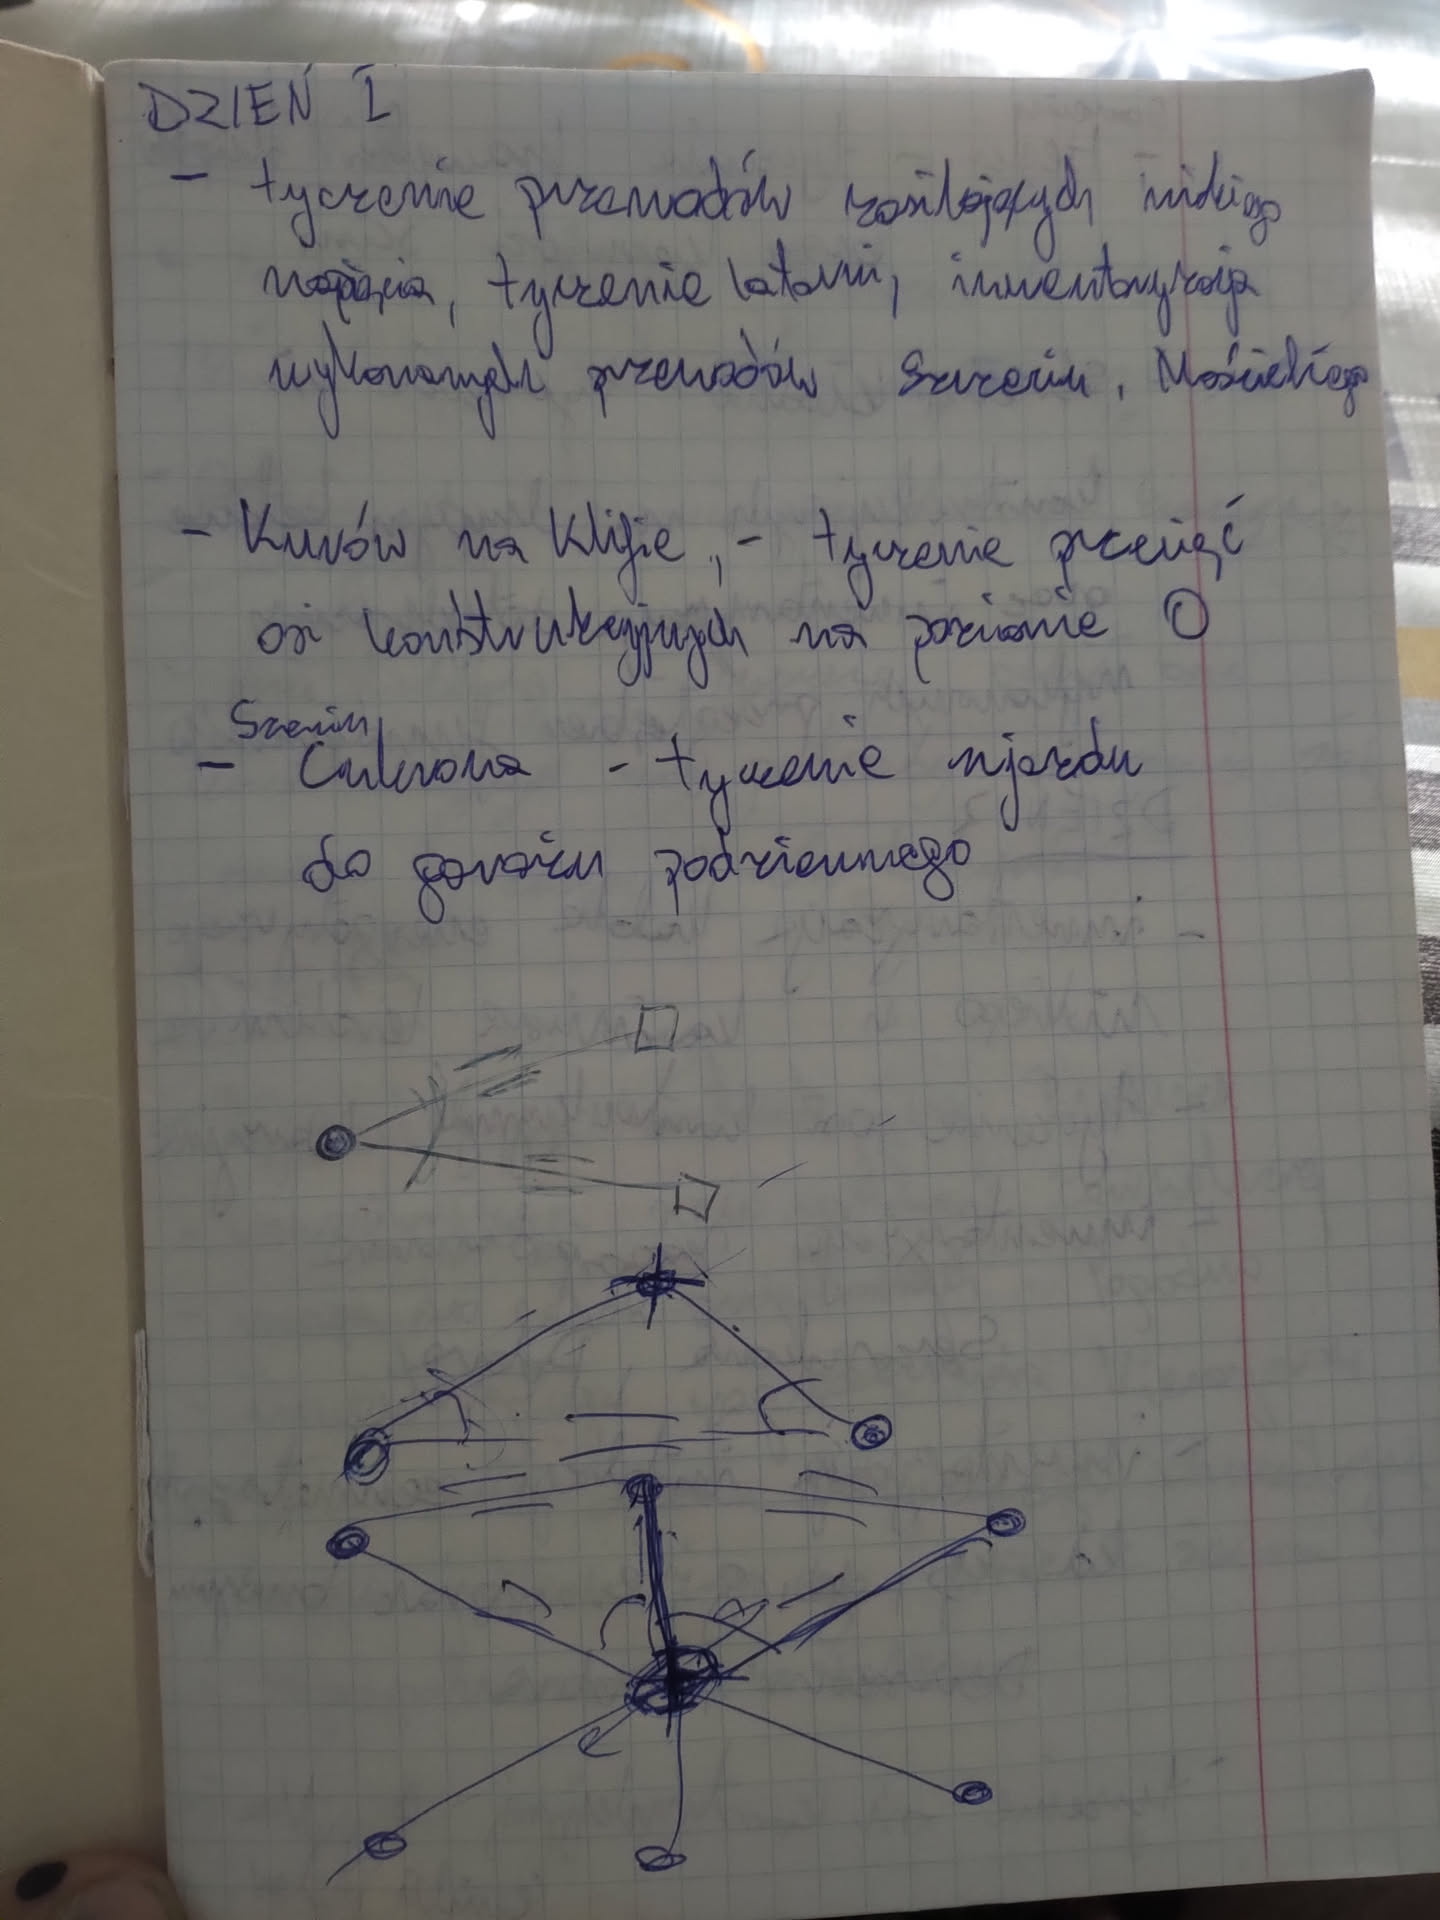 DZIEŃ 1
- tyczenie przewodów zasilających niskiego
napięcia, tyczenie latarni, inwentaryzacja
wykonanych przewodów Szczecin, Mościckiego
- Kurów na Klifie, - tyczenie przecięć
osi konstrukcyjnych na poziomie 0
Szczecin
- Cukrowa - tyczenie wjazdu
do garażu podziemnego